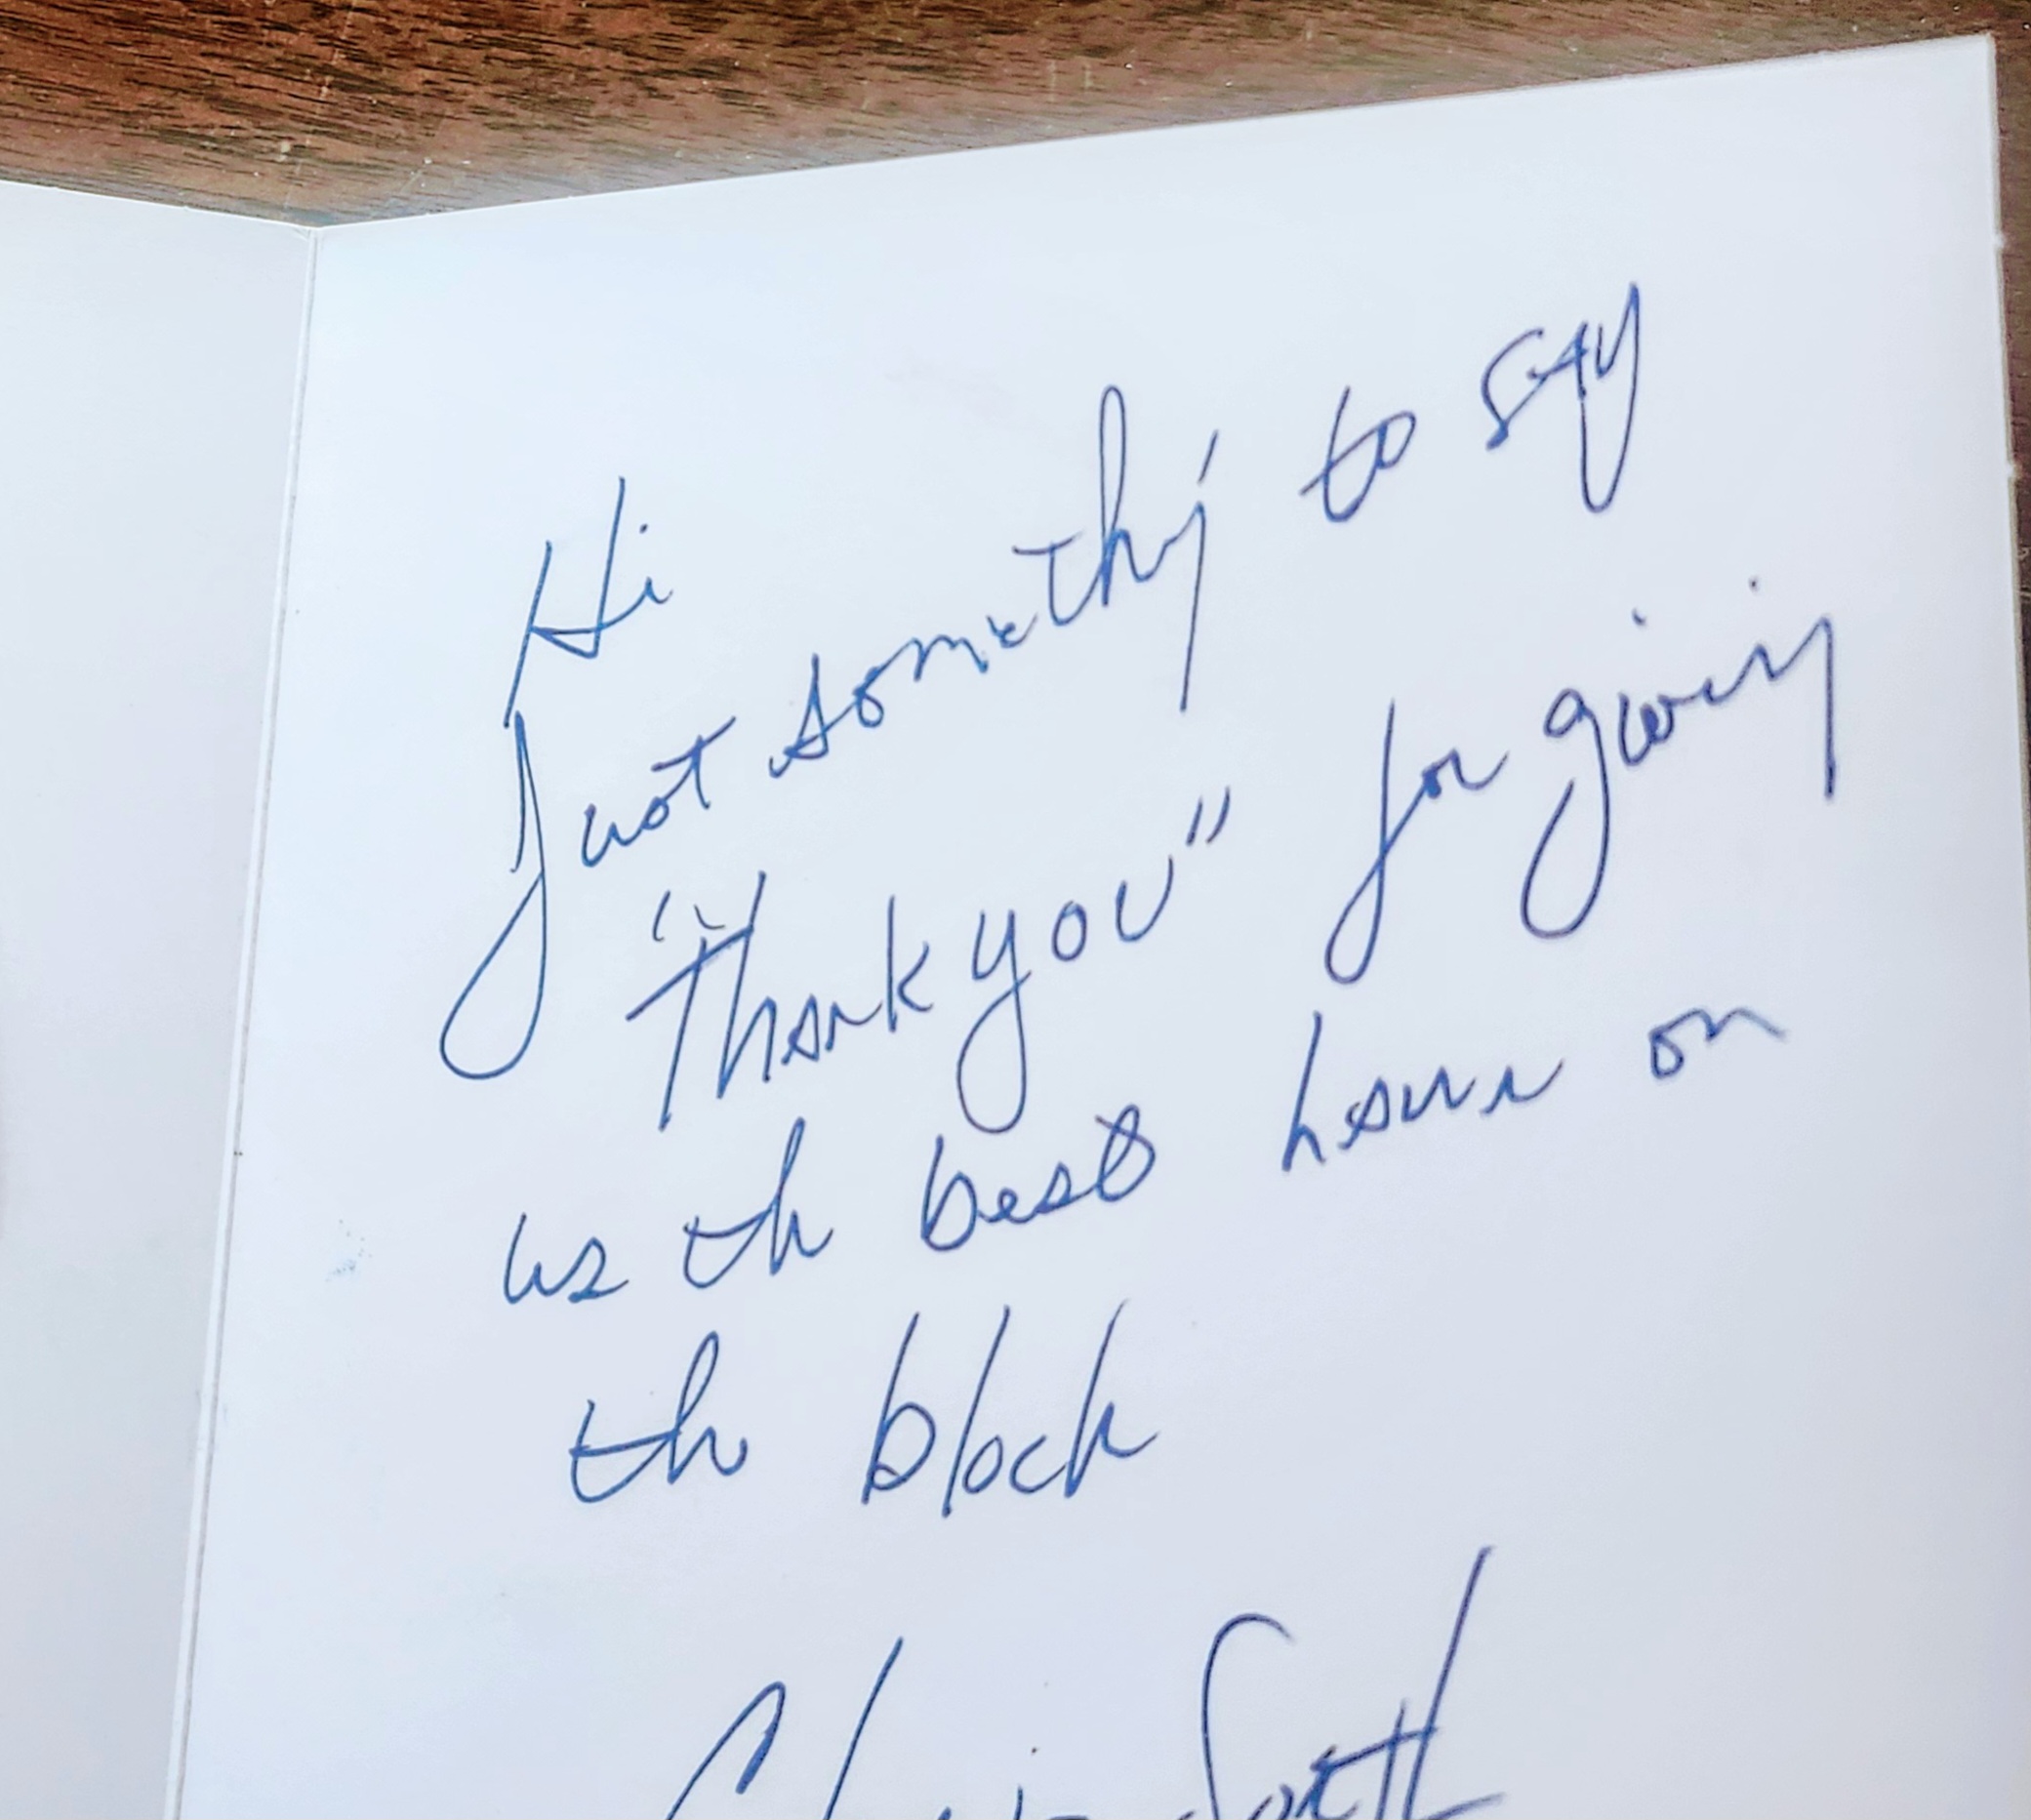 Hi
Just something to say
"Thank you" for giving
us the best house on
the block